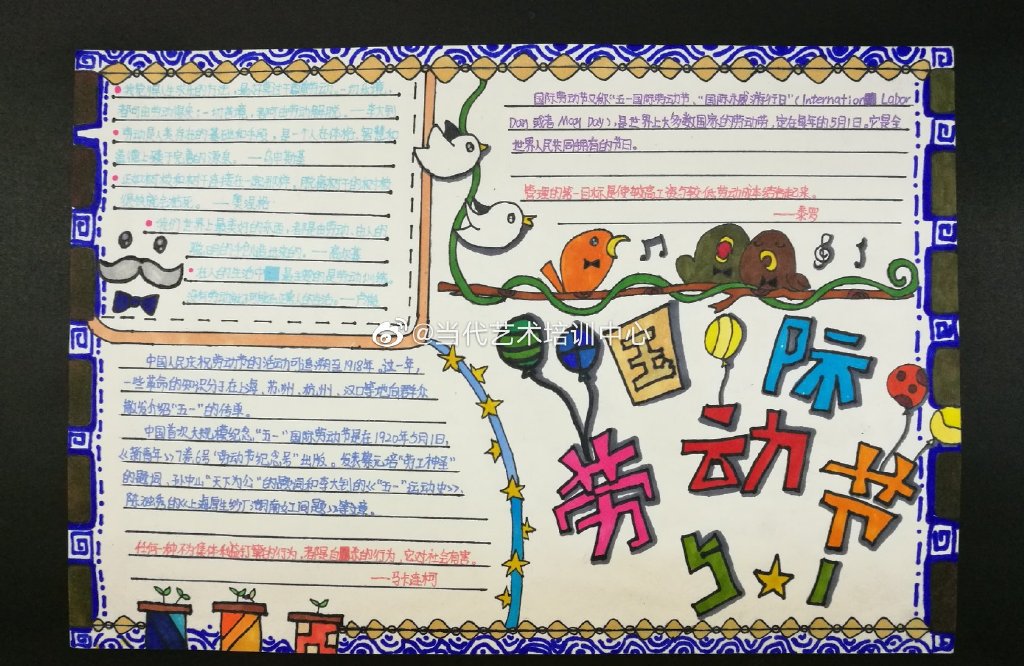 劳动是人类存在的基础和手段，是一个人在体格、智慧和
道德上臻于完善的源泉。——乌申斯基
我们世界上最美好的东西，都是由劳动、由人的
聪明的手创造出来的。——高尔基
国际劳动节又称“五一国际劳动节、“国际示威游行日”（International Labor
Day 或者 May Day），是世界上大多数国家的劳动节，定在每年的5月1日。它是全
世界人民共同拥有的节日。
管理的第一目标是使较高工资与较低劳动成本结合起来。
——泰罗
@当代艺术培训中心
中国人民庆祝劳动节的活动可追溯至1918年。这一年，
一些革命的知识分子在上海、苏州、杭州、汉口等地向群众
散发介绍“五一”的传单。
中国首次大规模纪念“五一”国际劳动节是在1920年5月1日，
《新青年》7卷6号“劳动节纪念号”出版。发表蔡元培“劳工神圣”
的题词、孙中山“天下为公”的题词和李大钊的《“五一”运动史》、
陈独秀的《上海厚生纱厂湖南女工问题》等文章。
任何一种不为集体利益打算的行为，都是自杀的行为，它对社会有害。
——马卡连柯
国际
劳动节
5·1